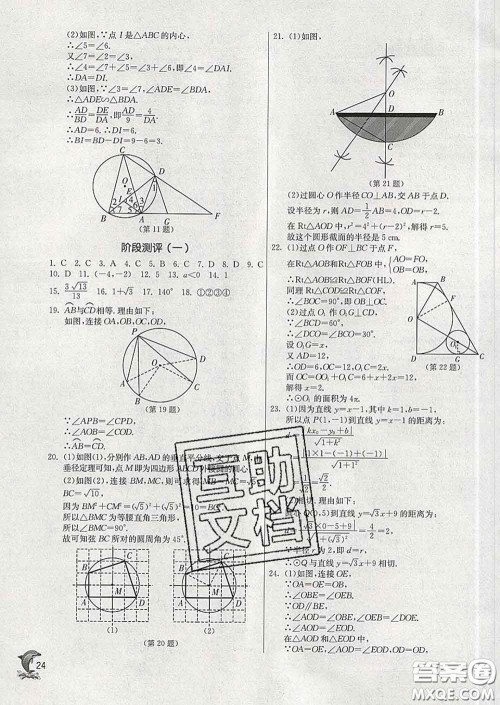 (2)如图,∵点 I 是△ABC 的内心,
∴∠5=∠6.
又∠7=∠2=∠3,
∴∠4+∠7=∠5+∠3=∠6+∠3,即∠4=∠DAI.
∴DA=DI.
(3)如图,∵∠7=∠2=∠3,∠ADE=∠BDA,
∴△ADE∽△BDA.
∴AD/BD=DE/DA,即AD/9=4/DA.
∴AD=6. ∴DI=6.
∴BI=BD-DI=9-6=3.
(第 11 题)
阶段测评(一)
1. C 2. C 3. A 4. C 5. B 6. D 7. D 8. D 9. C
10. D 11. (-4,-2) 12. 5 13. a<0 14. 1
15. 3√13/13 16. 1 17. 140° 18. ①②③④
19. AB与CD相等. 理由如下:
如图,连接 OA,OB,OC,OD,
(第 19 题)
∵∠APB=∠CPD,
∴∠AOB=∠COD.
∴AB=CD.
20. (1)如图(1),分别作 AB,AD 的垂直平分线,交于点 M,
垂径定理可知,点 M 即为四边形
(2)如图(2),连接 BM,MC,
BC=√10.
因为 BM²+CM²=(√5)²+(√5)²
所以△BMC 为等腰直角三角形.
所以∠BMC=90°.
故可知弦 BC 所对的圆周角为 45°
(1)
(2)
(第 20 题)
24
21. (1)如图,
(第 21 题)
(2)过圆心 O 作半径 CO⊥AB,交 AB 于点 D.
设半径为 r,则 AD=1/2 AB=4,OD=r-2.
在 Rt△AOD 中,r²=4²+(r-2)²,解得 r=5.
故这个圆形截面的半径是 5 cm.
22. (1)过点 O 作 OF⊥BC 于点 F.
在 Rt△AOB 和 Rt△FOB 中,{AO=FO,OB=OB,
∴Rt△AOB≌Rt△FOB(HL).
同理 Rt△COD≌Rt△COF,
∴∠BOC=90°,即 OB⊥OC.
(2)过点
∵∠CBD=
∴∠DCO=∠BCO=30°.
设 O₁G=x.
又 AD=12,
∴OD=6,OC=12,O₁C=2x.
∴OC=OO₁+O₁C=6+x+2x=12.
解得 x=2.
∴⊙O₁ 的面积为 4π.
(第 22 题)
23. (1)因为直线 y=x-1,其中 k=1,b=-1.
所以点 P(1,-1)到直线 y=x-1 的距离为:
|kx₀-y₀+b|
|1×1-(-1)+(-1)|
相切. 理由如下:
心 Q(0,5)到直线 y=√3x+9 的距离为:
|√3×0-5+9|
=4/2=2.
半径 r 为 2,即 d=r.
∴⊙Q 与直线 y=√3x+9 相切.
24. (1)如图,连接 OE,
∵OA=OE,
∴∠OEA=∠OAE.
∵OD∥BE,
∴∠OEA=∠DOE,∠OAE=∠AOD.
∴∠AOD=∠EOD.
在△AOD 和△EOD 中,
∵OA=OE,∠AOD=∠EOD,OD=OD,
互助
文档
答案圈
MXQE.COM